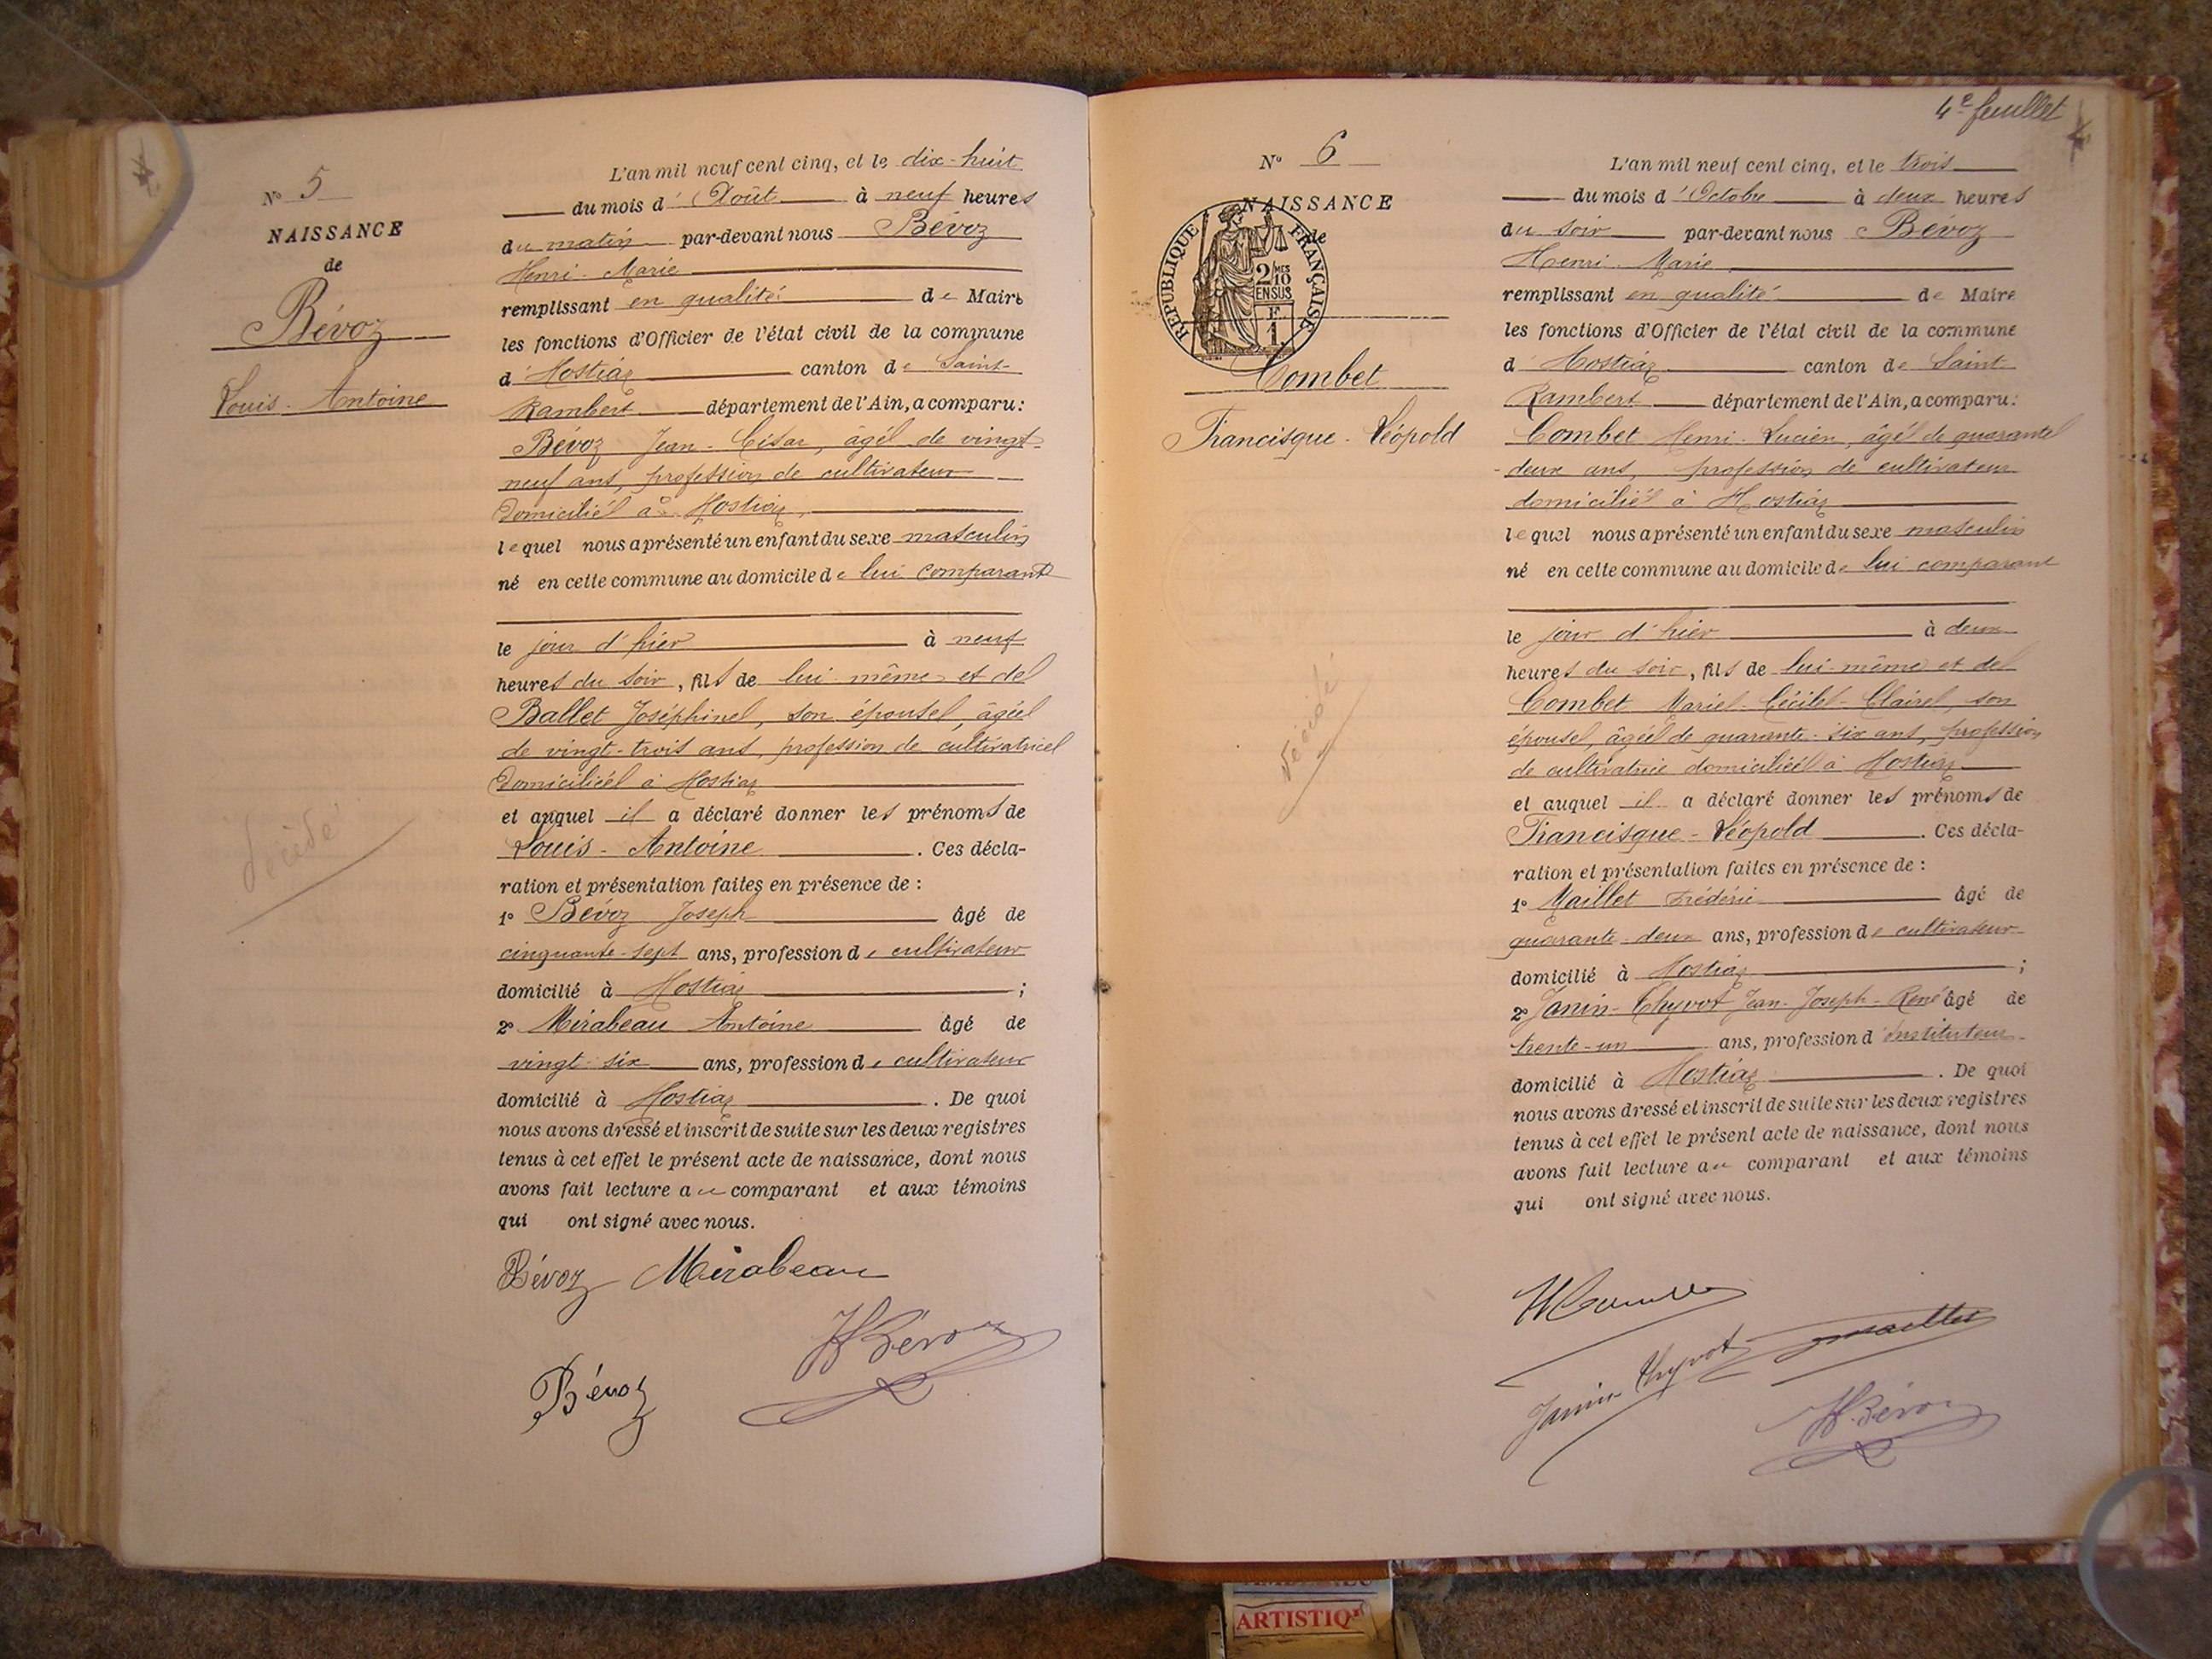 N° 5
NAISSANCE
de
Bévoz
Louis-Antoine
décédé
L'an mil neuf cent cinq, et le dix-huit
du mois d'Août à neuf heures
du matin par-devant nous Bévoz
Henri-Marie
remplissant en qualité de Maire
les fonctions d'Officier de l'état civil de la commune
d'Hostiaz canton de Saint-
Rambert département de l'Ain, a comparu:
Bévoz Jean-César, âgé de vingt-
neuf ans, profession de cultivateur
domicilié à Hostiaz,
lequel nous a présenté un enfant du sexe masculin
né en cette commune au domicile de lui comparant
le jour d'hier à neuf
heures du soir, fils de lui même et de
Ballet Joséphine, son épouse, âgée
de vingt-trois ans, profession de cultivatrice
domiciliée à Hostiaz
et auquel il a déclaré donner les prénoms de
Louis-Antoine. Ces décla-
ration et présentation faites en présence de :
1° Bévoz Joseph âgé de
cinquante-sept ans, profession de cultivateur
domicilié à Hostiaz ;
2° Mirabeau Antoine âgé de
vingt-six ans, profession de cultivateur
domicilié à Hostiaz. De quoi
nous avons dressé et inscrit de suite sur les deux registres
tenus à cet effet le présent acte de naissance, dont nous
avons fait lecture au comparant et aux témoins
qui ont signé avec nous.
Bévoz Mirabeau
H Bévoz
Bévoz
4e feuillet
N° 6
NAISSANCE
de
RÉPUBLIQUE FRANÇAISE
2/10MES
EN SUS
F
1
Combet
Francisque-Léopold
décédé
L'an mil neuf cent cinq, et le trois
du mois d'Octobre à deux heures
du soir par-devant nous Bévoz
Henri-Marie
remplissant en qualité de Maire
les fonctions d'Officier de l'état civil de la commune
d'Hostiaz canton de Saint
Rambert département de l'Ain, a comparu:
Combet Henri-Lucien, âgé de quarante
-deux ans, profession de cultivateur
domicilié à Hostiaz
lequel nous a présenté un enfant du sexe masculin
né en cette commune au domicile de lui comparant
le jour d'hier à deux
heures du soir, fils de lui-même et de
Combet Marie-Cécile-Claire, son
épouse, âgée de quarante-six ans, profession
de cultivatrice domiciliée à Hostiaz
et auquel il a déclaré donner les prénoms de
Francisque-Léopold. Ces décla-
ration et présentation faites en présence de :
1° Maillet Frédéric âgé de
quarante-deux ans, profession de cultivateur
domicilié à Hostiaz ;
2° Janin-Thyvot Jean-Joseph-René âgé de
trente-un ans, profession d'instituteur
domicilié à Hostiaz. De quoi
nous avons dressé et inscrit de suite sur les deux registres
tenus à cet effet le présent acte de naissance, dont nous
avons fait lecture au comparant et aux témoins
qui ont signé avec nous.
Maillet
Janin Thyvot
H. Bévoz
ARTISTIQ